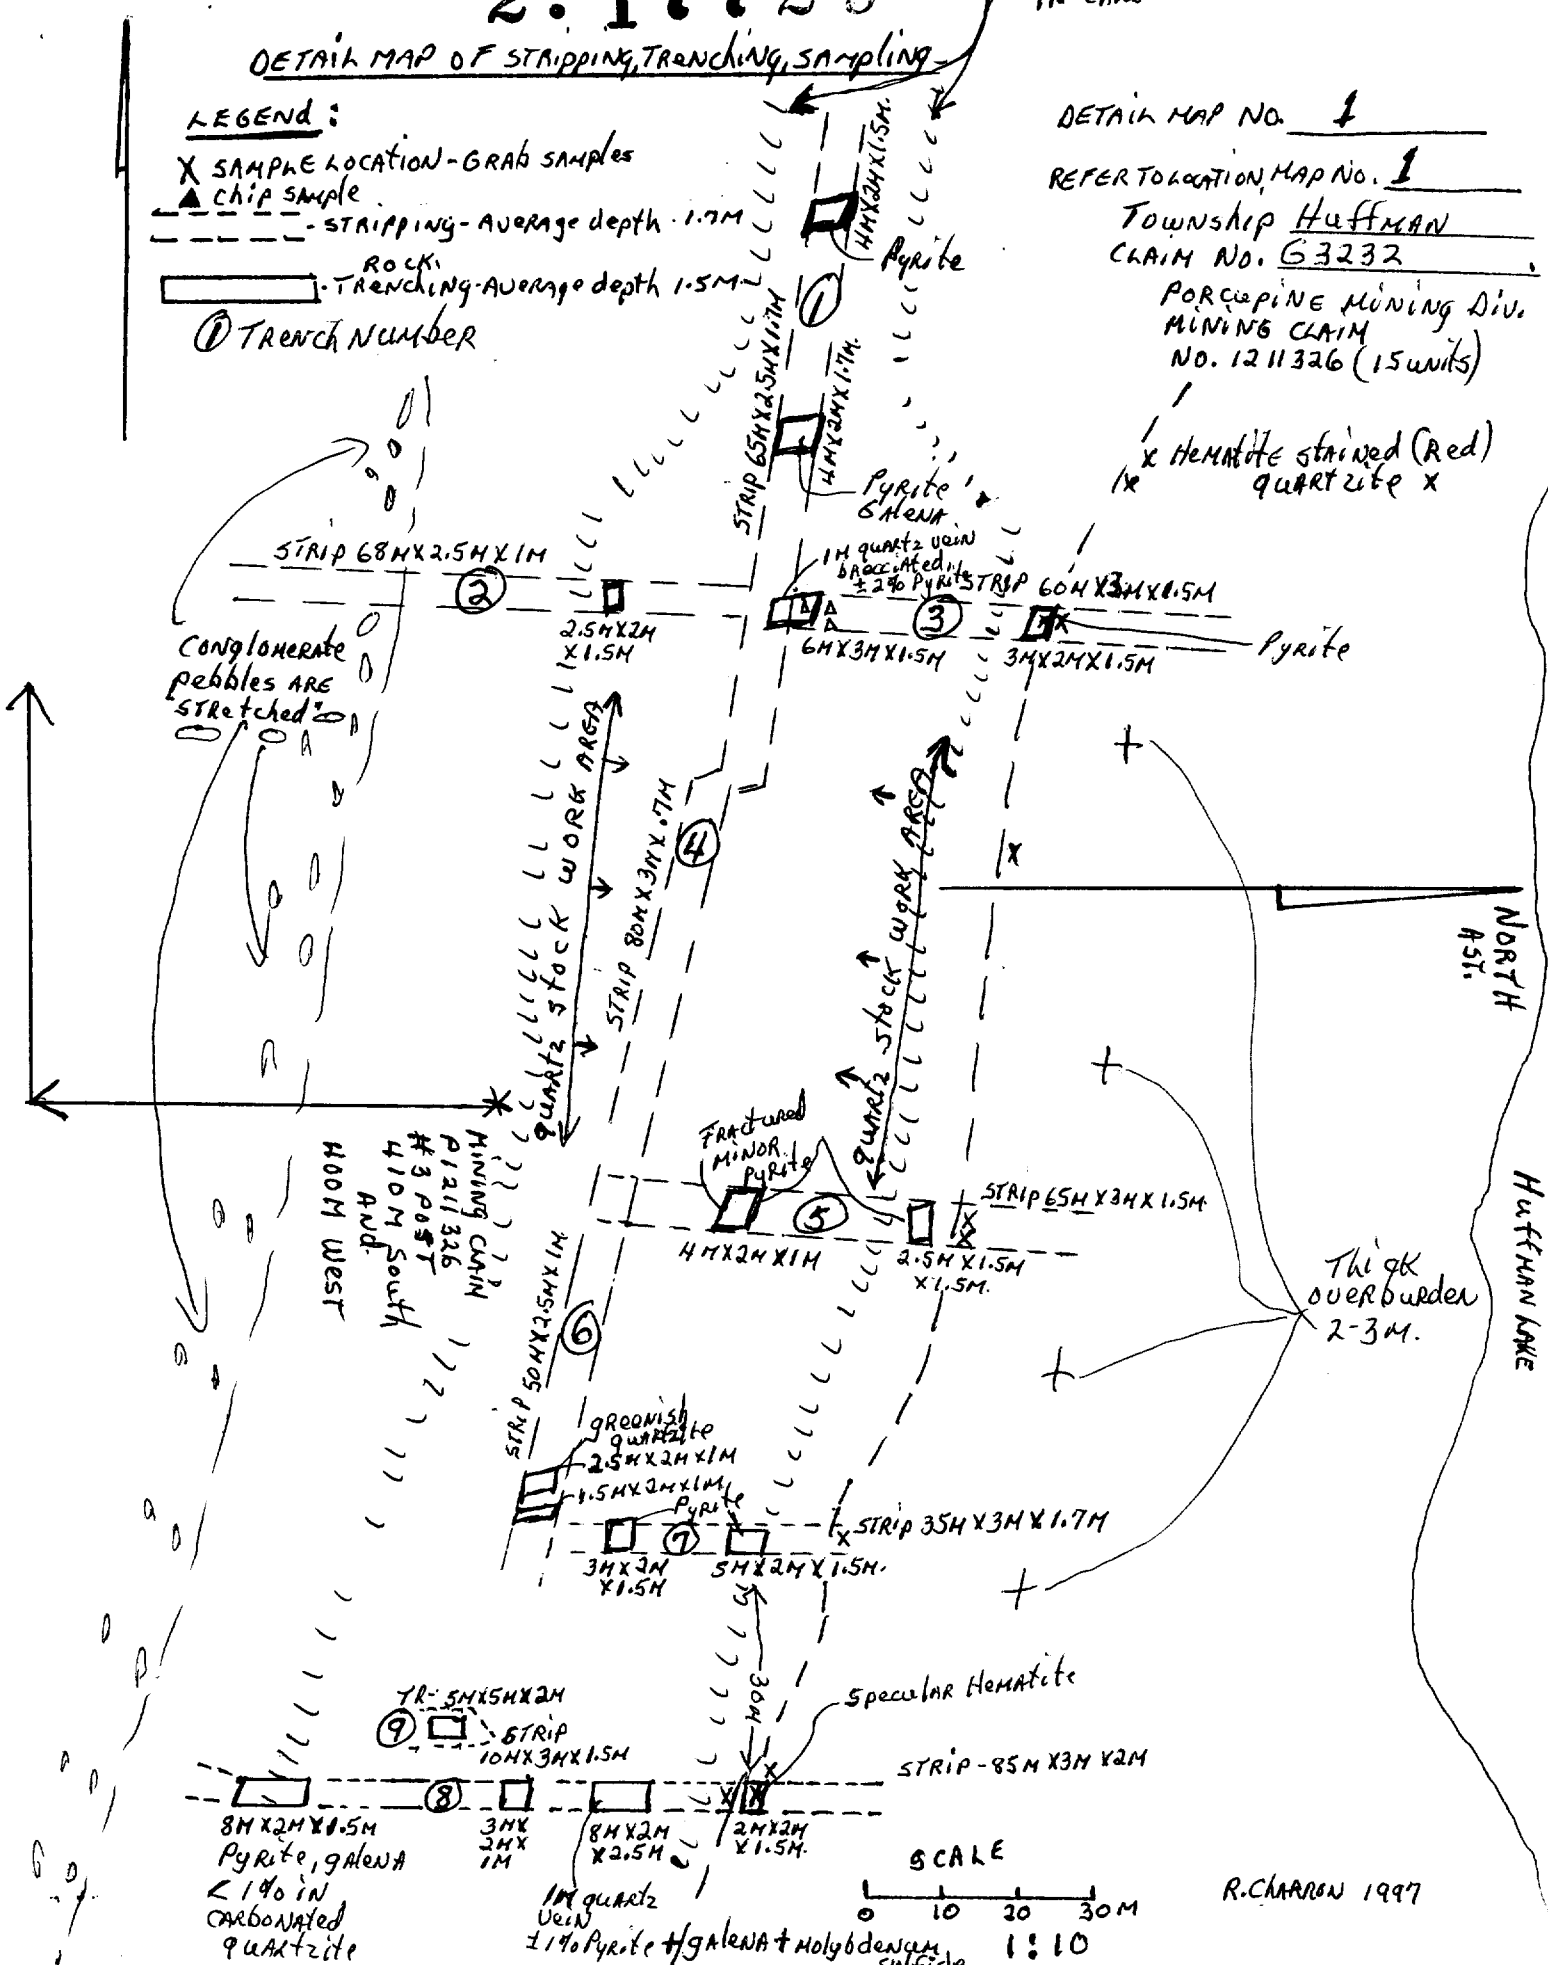 DETAIL MAP OF STRIPPING, TRENCHING, SAMPLING
LEGEND:
X SAMPLE LOCATION - GRAB SAMPLES
▲ CHIP SAMPLE
- STRIPPING - AVERAGE depth 1.7M
ROCK
- TRENCHING - AVERAGE depth 1.5M
① TRENCH NUMBER
DETAIL MAP NO. 1
REFER TO LOCATION MAP NO. 1
TOWNSHIP HUFFMAN
CLAIM NO. G3232
PORCUPINE MINING DIV.
MINING CLAIM
NO. 1211326 (15 units)
4MX2MX1.5M.
Pyrite
1
STRIP 65MX2.5MX1.7M
4MX2MX1.7M.
Pyrite
GALENA
x HEMATITE STAINED (Red)
/x quartzite x
STRIP 68MX2.5MX1M
2
2.5MX2M
X1.5M
1M quartz vein
brecciated,
±2% Pyrite
STRIP 60MX3MX1.5M
3
6MX3MX1.5M
3MX2MX1.5M
Pyrite
CONGLOMERATE
pebbles ARE
"STRetched"
QUARTZ STOCK WORK AREA
STRIP 80MX3MX.7M
4
QUARTZ STOCK WORK AREA
x
NORTH
AST.
HUFFMAN LAKE
MINING CLAIM
P1211326
#3 POST
410M South
AND
400M WEST
FRACTURED
MINOR
PYRITE
5
STRIP 65MX3MX1.5M
4MX2MX1M
2.5MX1.5M
X1.5M.
Thick
overburden
2-3M.
STRIP 50MX2.5MX1M
6
greenish
quartzite
2.5MX2MX1M
1.5MX2MX1M
Pyrite
7
STRIP 35MX3MX1.7M
3MX2M
X1.5M
5MX2MX1.5M.
30M
Specular Hematite
TR- 5MX5MX2M
9
STRIP
10MX3MX1.5M
STRIP - 85MX3MX2M
8
8MX2MX1.5M
Pyrite, galena
<1% in
CARBONATED
quartzite
3MX
2MX
1M
8MX2M
X2.5M
2MX2M
X1.5M.
1M quartz
vein
±1% Pyrite + galena + Molybdenum
sulfide
SCALE
0 10 20 30M
1:10
R. CHARRON 1997